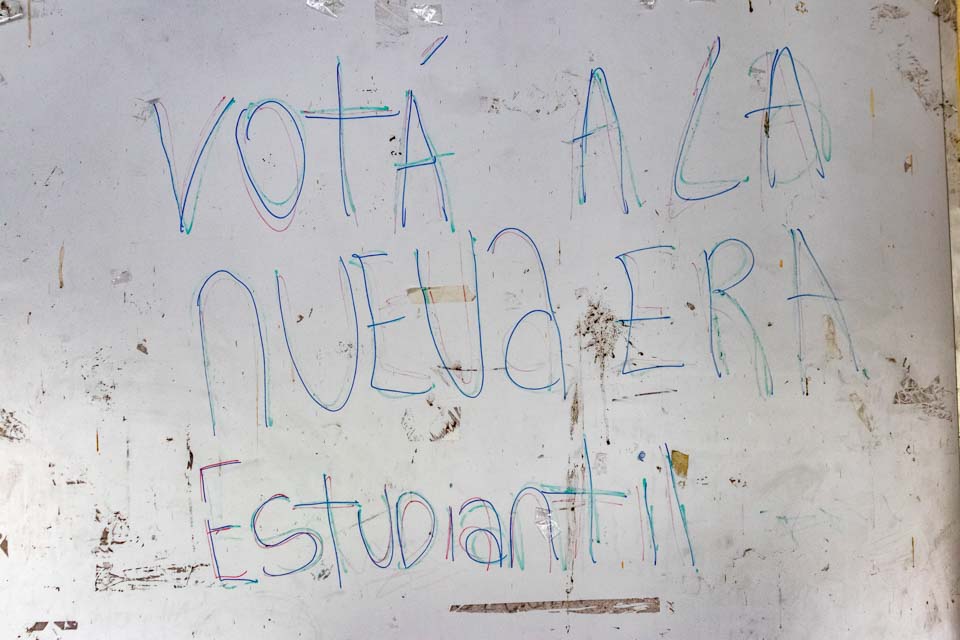 VOTÁ A LA
NUEVa ERA
Estudiantil